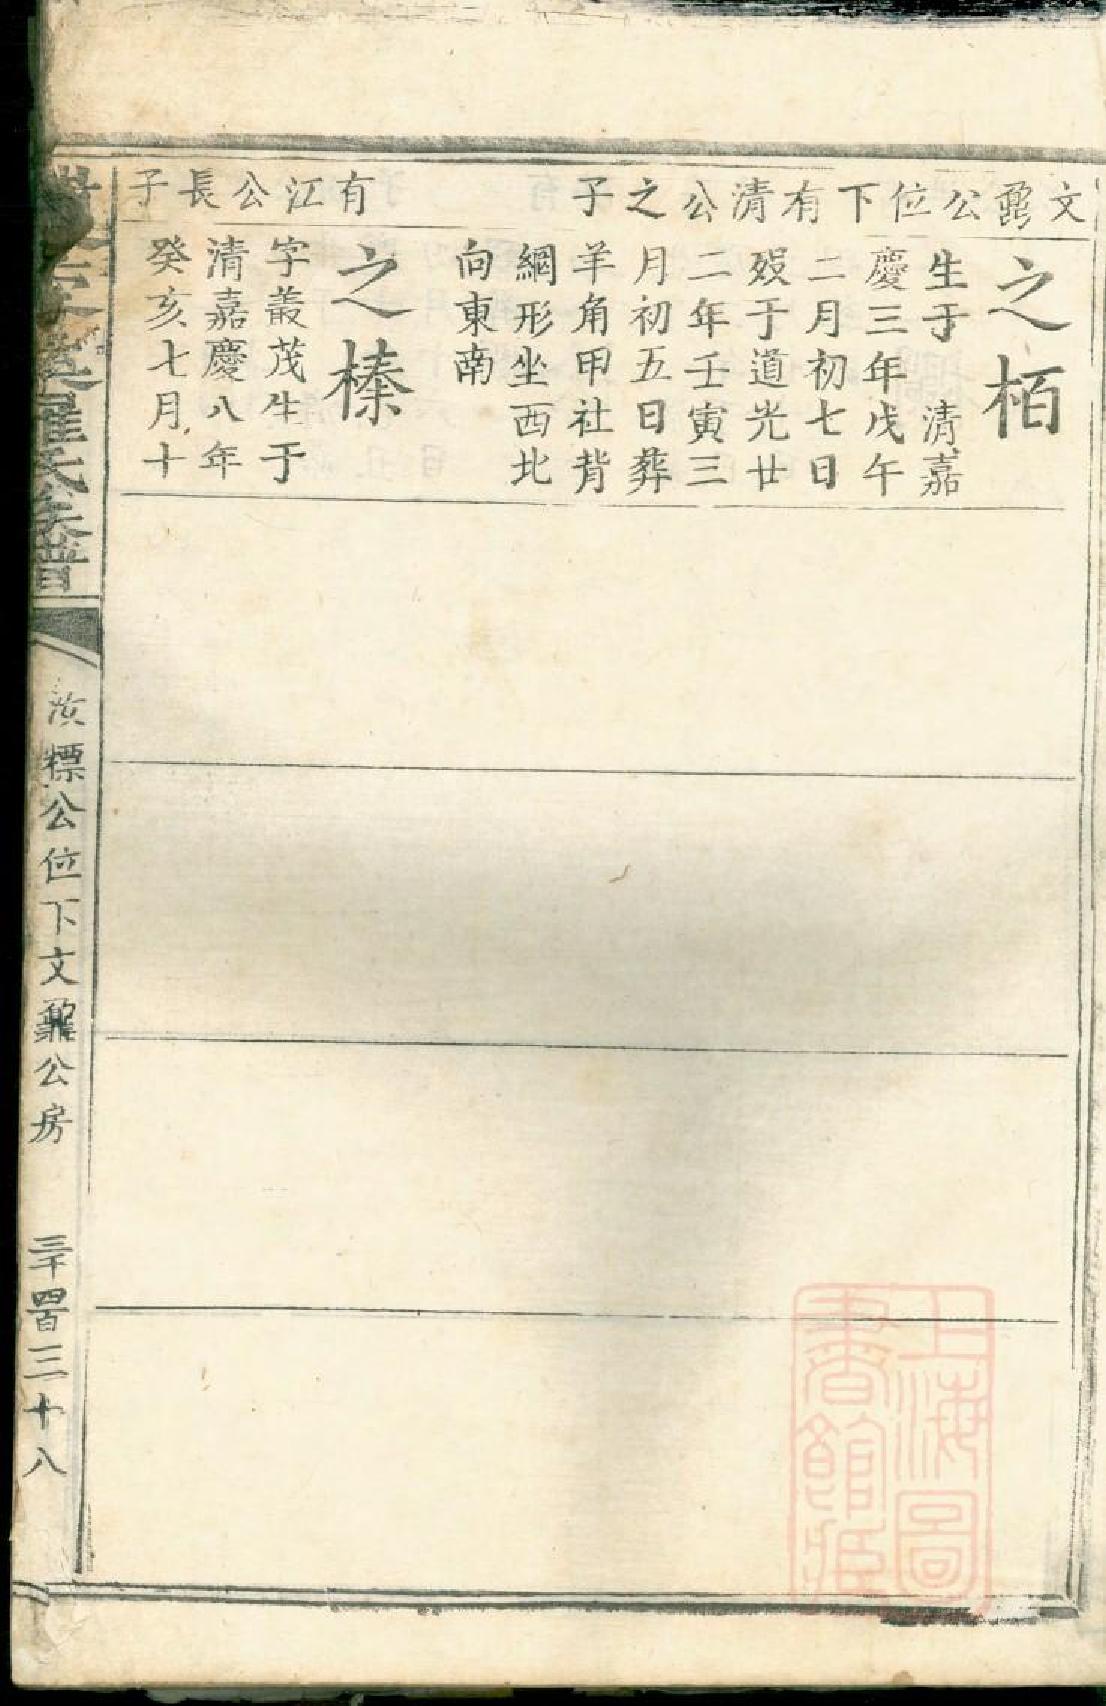 文鼐公位下有清公之子
之栢
生于 清嘉
慶三年戊午
二月初七日
殁于道光廿
二年壬寅三
月初五日葬
羊角甲社背
網形坐西北
向東南
有江公長子
之榛
字叢茂生于
清嘉慶八年
癸亥七月十
羅氏族譜
標公位下文鼐公房
三千四百三十八
上海圖
書館藏